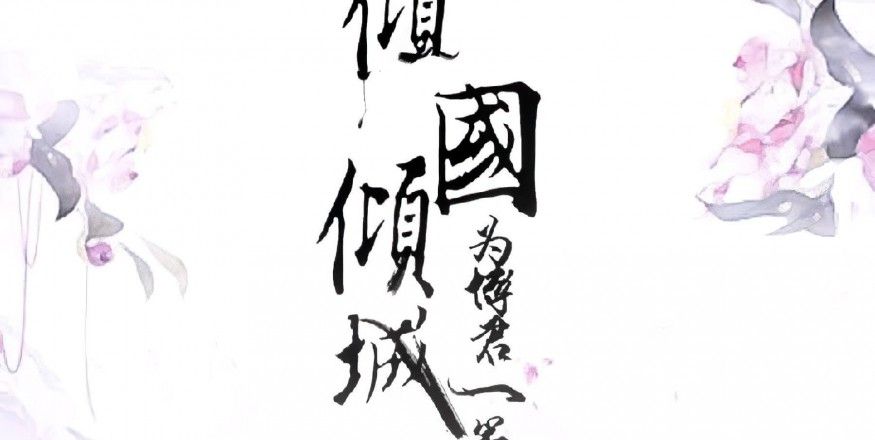 傾國傾城
为博君一笑